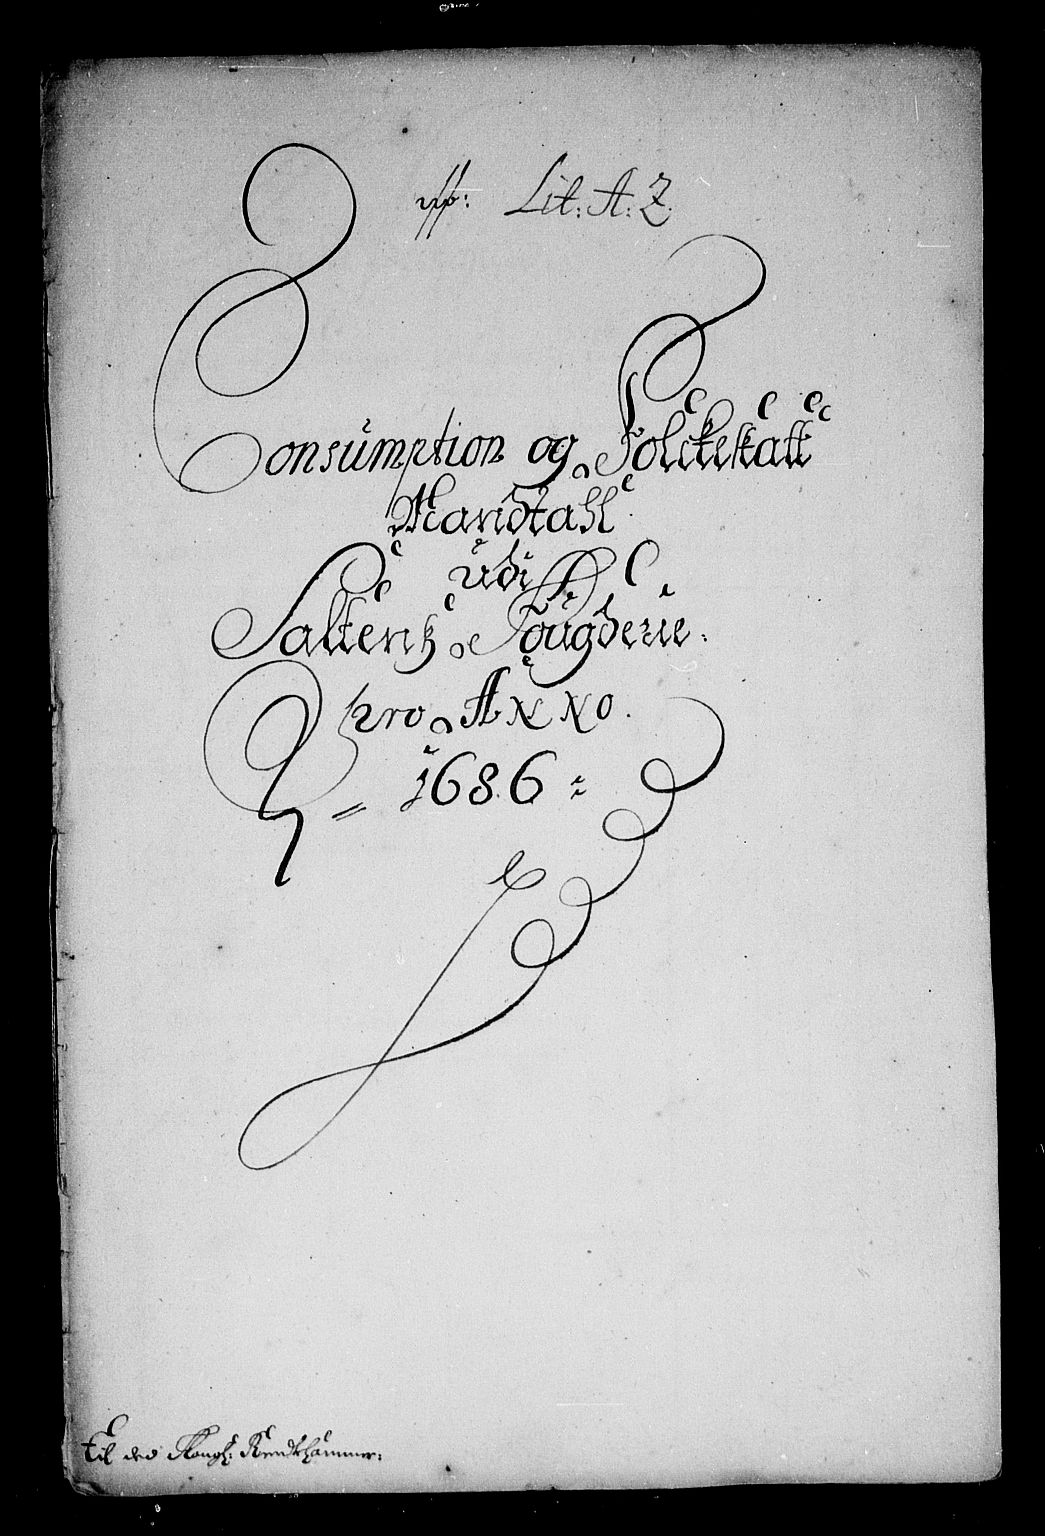 Lit: A: Z.
Consumption og Folckeskatt
Mandtall
udi
Saltens Fougderie.
pro Anno.
1686
Til ded Kongl: Rentekammer: